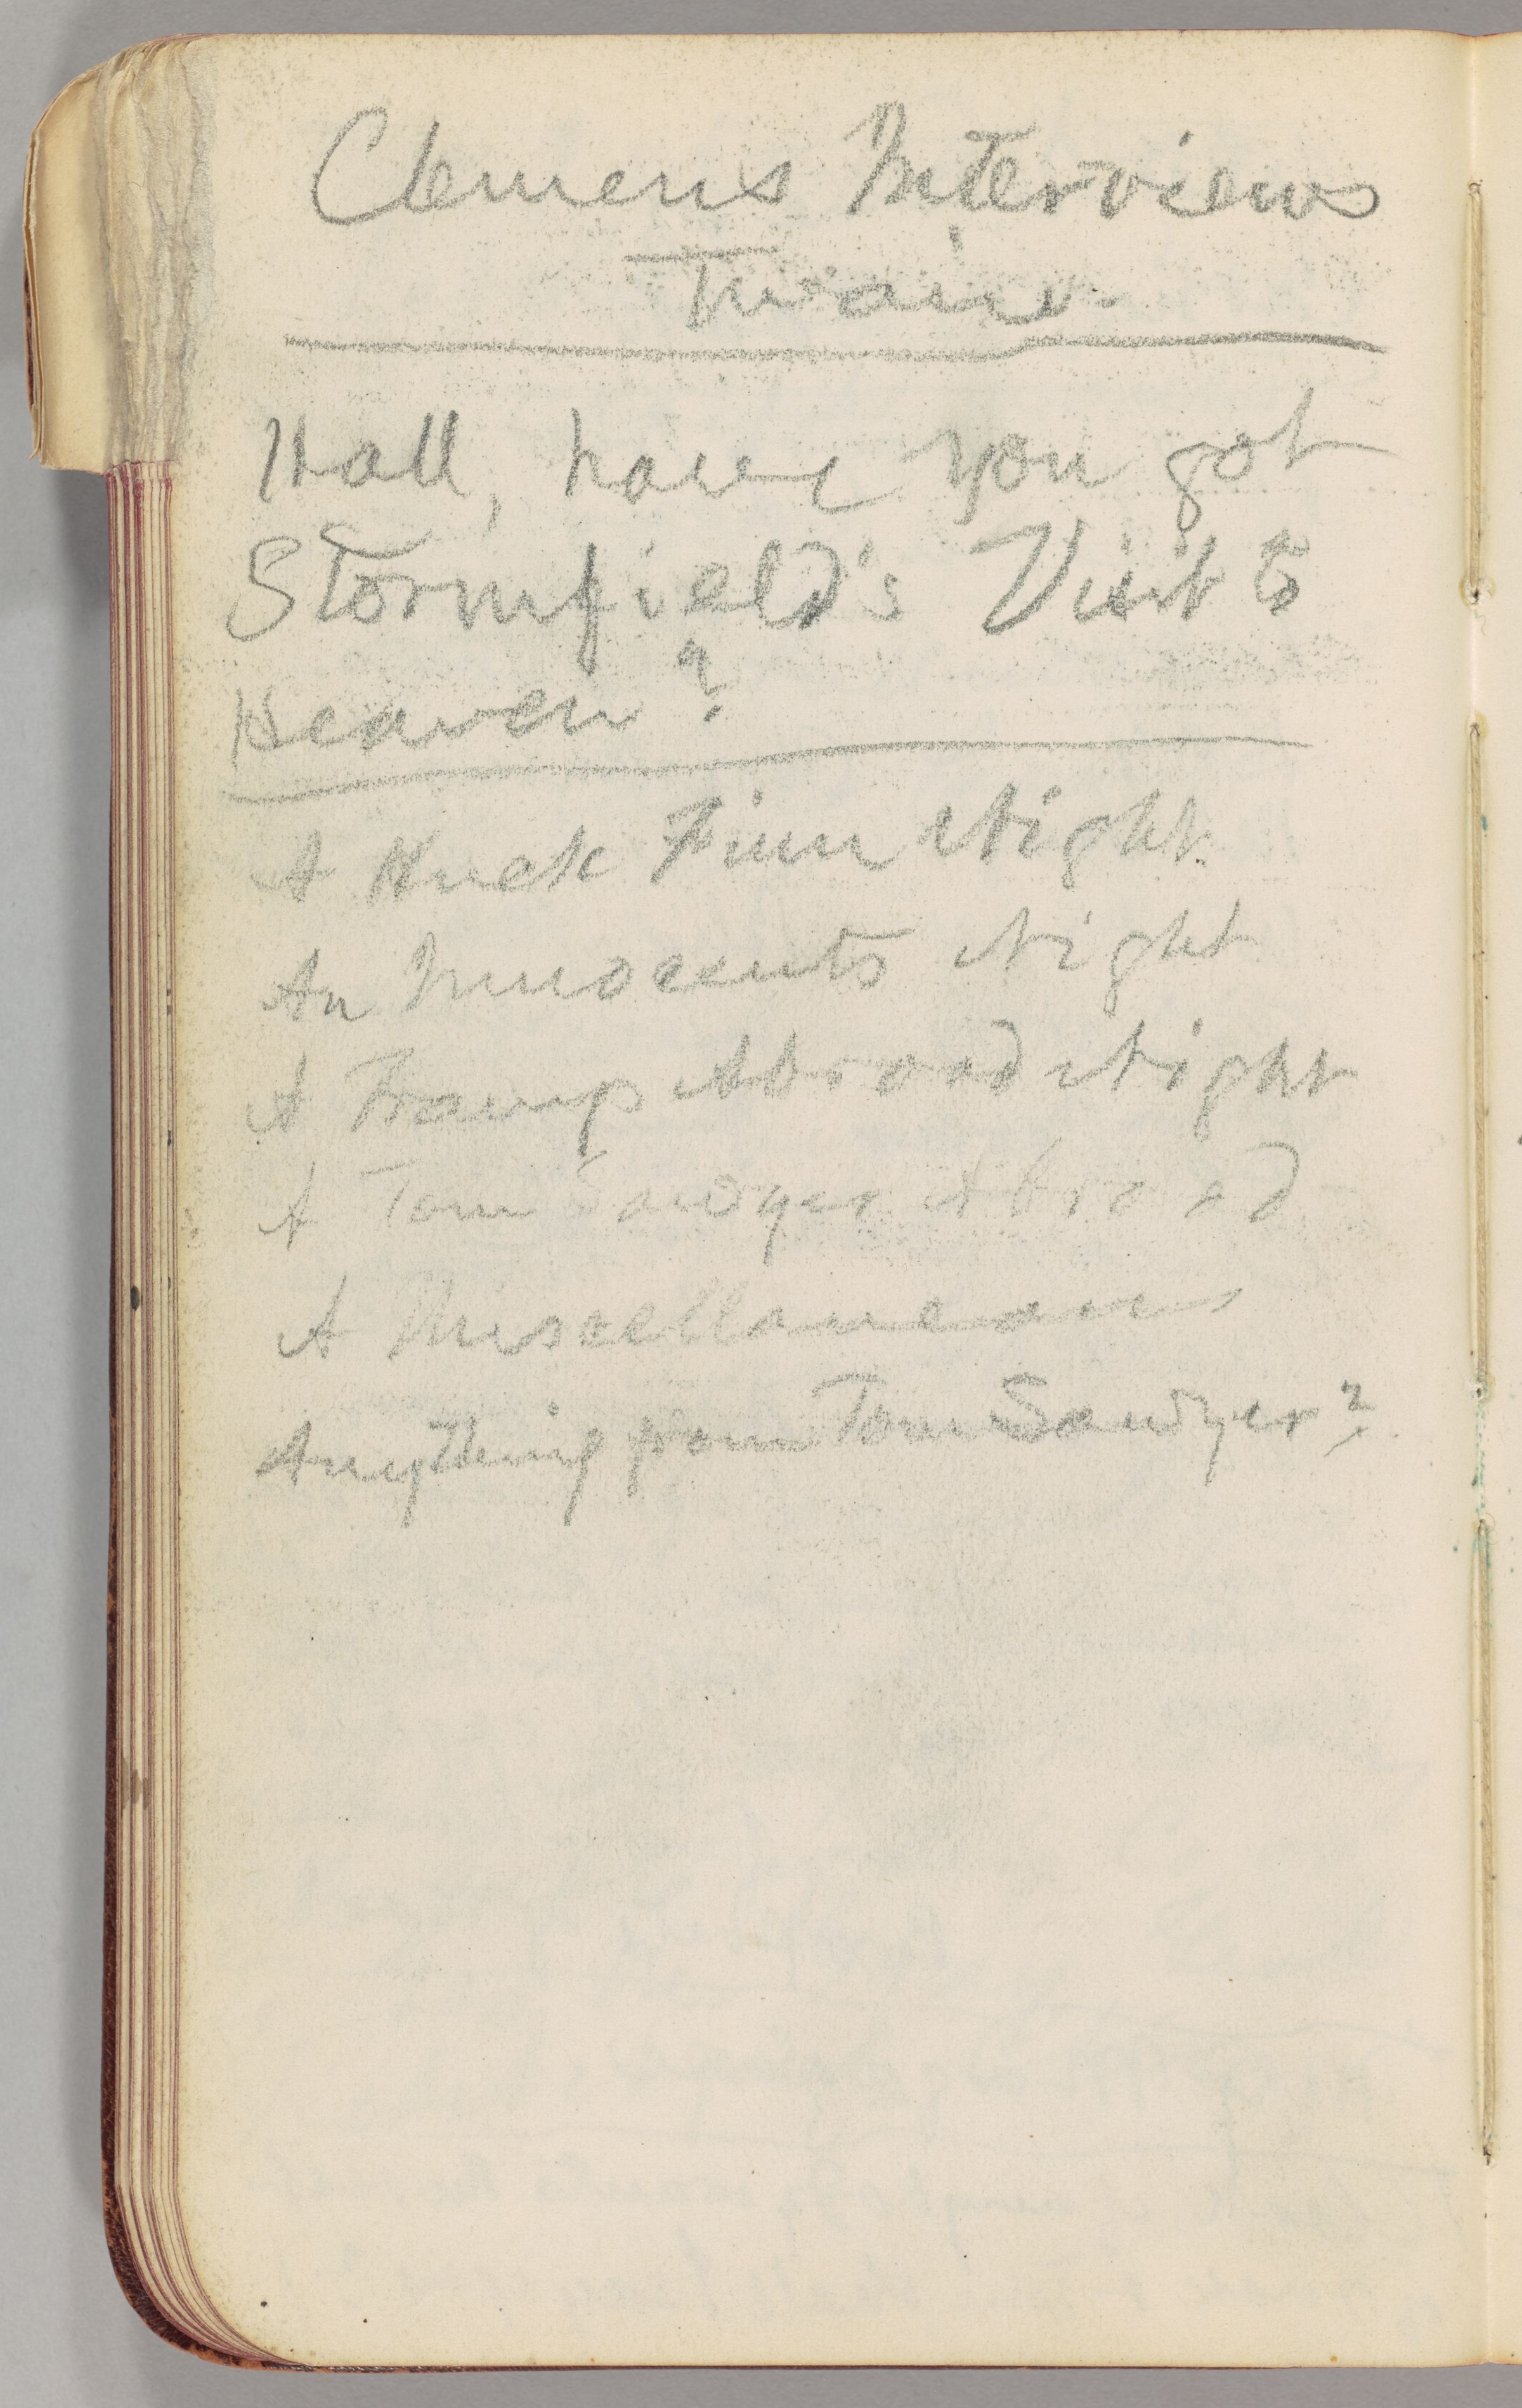 Clemens Interviews
Twain.
Hall, have you got
Stormfield's Visit to
Heaven?
A Huck Finn Night.
An Innocents Night
A Tramp Abroad Night
A Tom Sawyer Abroad
A Miscellaneous
Anything from Tom Sawyer?